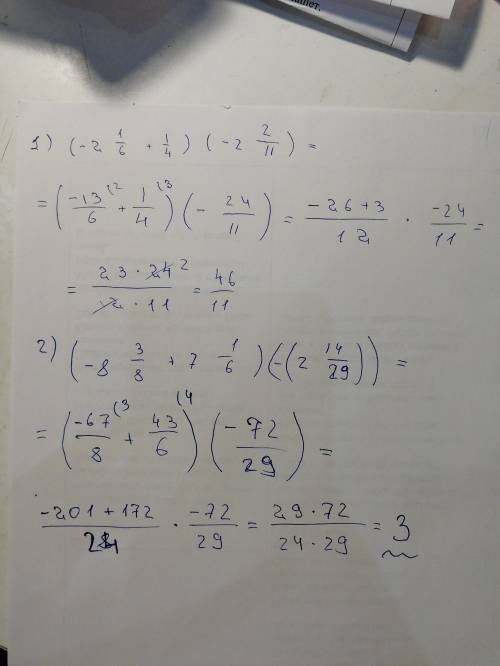 1) (-2 1/6 + 1/4) (-2 2/11) =
= (-13/6 (2 + 1/4 (3) (- 24/11) = -26+3/12 · -24/11 =
= 23·24 2/12·11 = 46/11
2) (-8 3/8 + 7 1/6) (-(2 14/29)) =
= (-67/8 (3 + 43/6 (4) (-72/29) =
-201+172/24 · -72/29 = 29·72/24·29 = 3